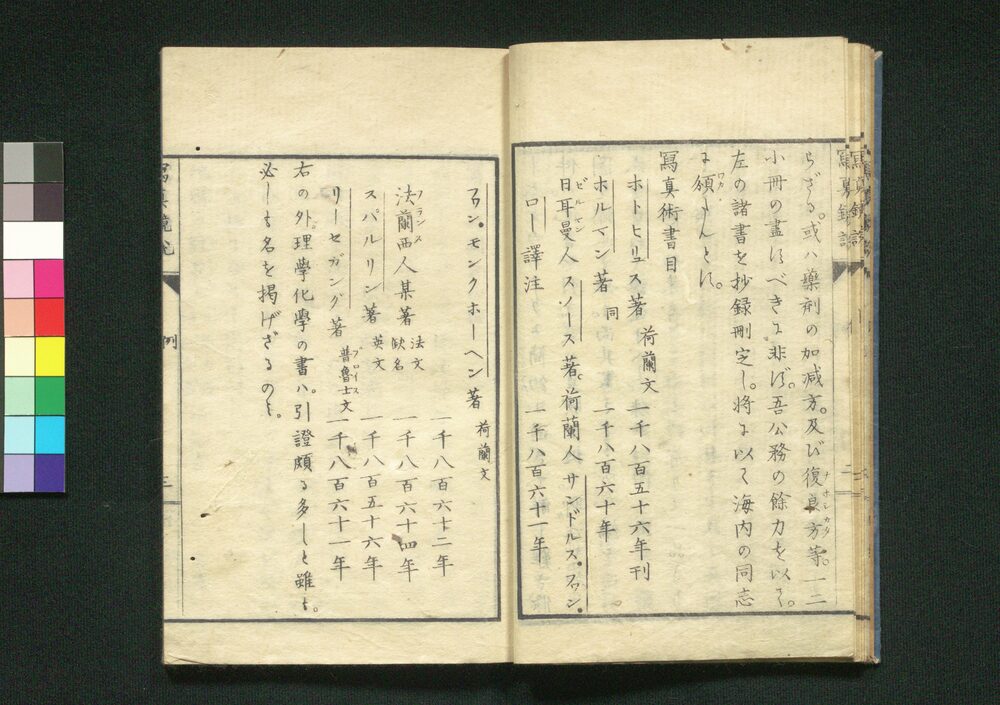 らざる。或ハ藥剤の加減方。及び復良方等。一二
小冊の盡すべきに非ず。吾公務の餘力を以て。
左の諸書を抄録刪定し。將に以て海内の同志
に頒たんとす。
寫真術書目
ホトヒリュス著 荷蘭文 一千八百五十六年刊
ホルマン著 同 一千八百六十年
日耳曼人スソース著。荷蘭人サンドルス。フワン。
ロー譯注 一千八百六十一年
フワン。モンクホーヘン著 荷蘭文
一千八百六十二年
法蘭西人某著 法文 欽名 一千八百六十四年
スパルリン著 英文 一千八百五十六年
リーセガング著 普魯士文 一千八百六十一年
右の外理學化學の書ハ。引證頗る多しと雖も。
必しも名を掲げざるのミ。